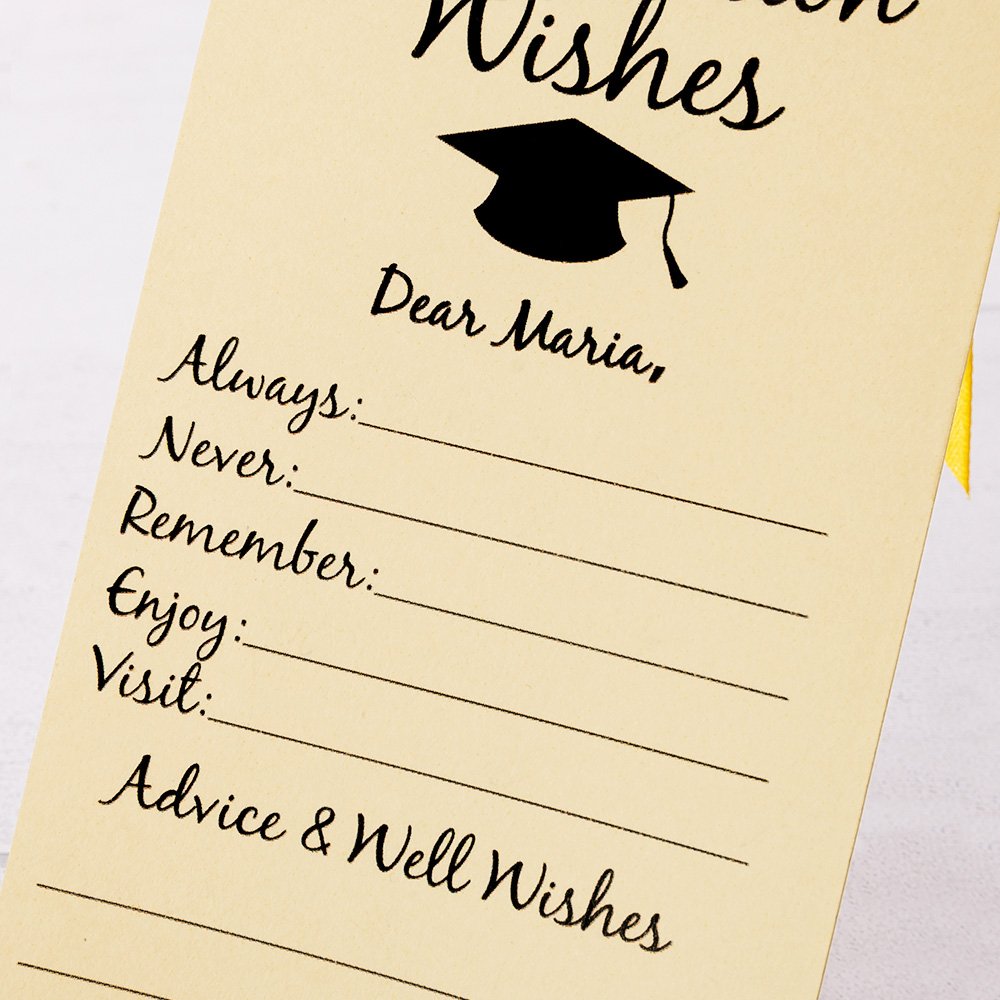 Wishes
Dear Maria,
Always:
Never:
Remember:
Enjoy:
Visit:
Advice & Well Wishes